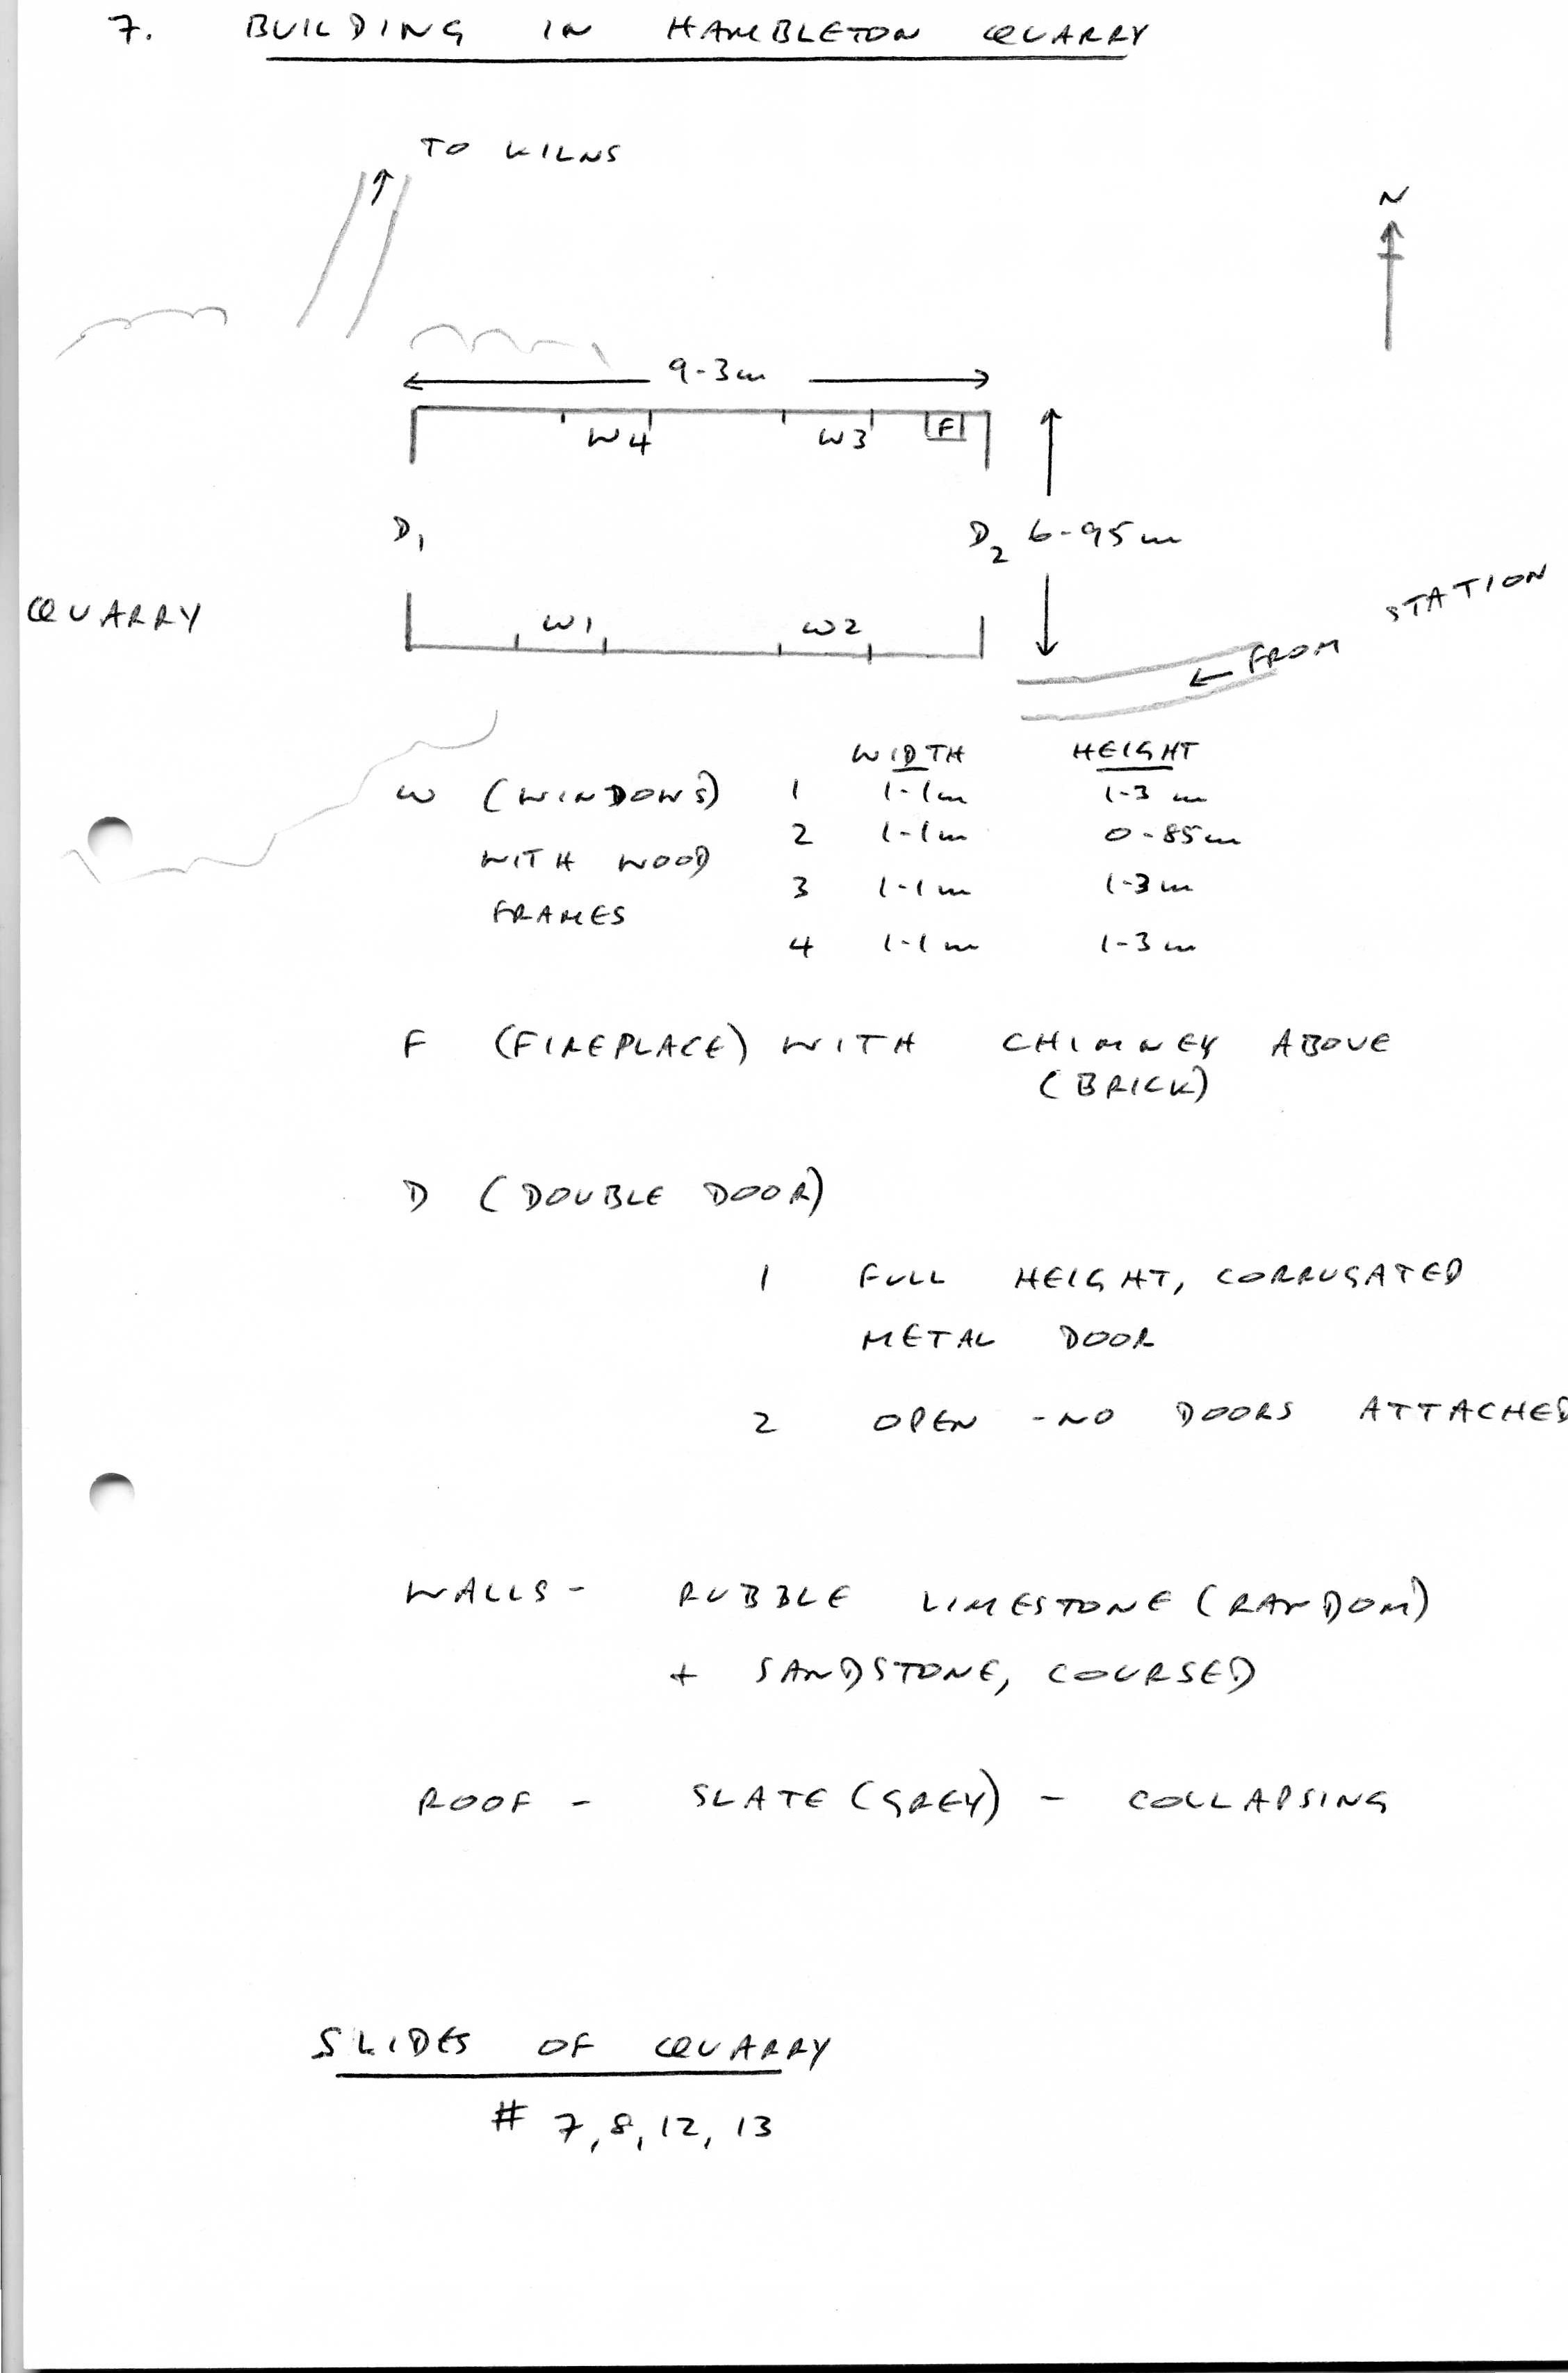 7. BUILDING IN HAMBLETON QUARRY
TO KILNS
N
9-3m
W4 W3 F
D1 D2 6-95m
QUARRY
W1 W2
← FROM STATION
WIDTH HEIGHT
W (WINDOWS) 1 1-1m 1-3m
2 1-1m 0-85m
WITH WOOD
3 1-1m 1-3m
FRAMES
4 1-1m 1-3m
F (FIREPLACE) WITH CHIMNEY ABOVE
(BRICK)
D (DOUBLE DOOR)
1 FULL HEIGHT, CORRUGATED
METAL DOOR
2 OPEN - NO DOORS ATTACHED
WALLS - RUBBLE LIMESTONE (RANDOM)
+ SANDSTONE, COURSED
ROOF - SLATE (GREY) - COLLAPSING
SLIDES OF QUARRY
# 7, 8, 12, 13